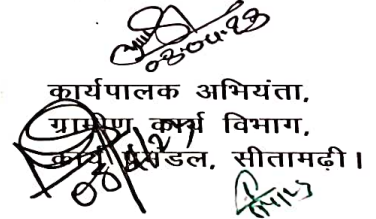 03.04.23
कार्यपालक अभियंता,
ग्रामीण कार्य विभाग,
कार्य प्रमंडल, सीतामढ़ी।